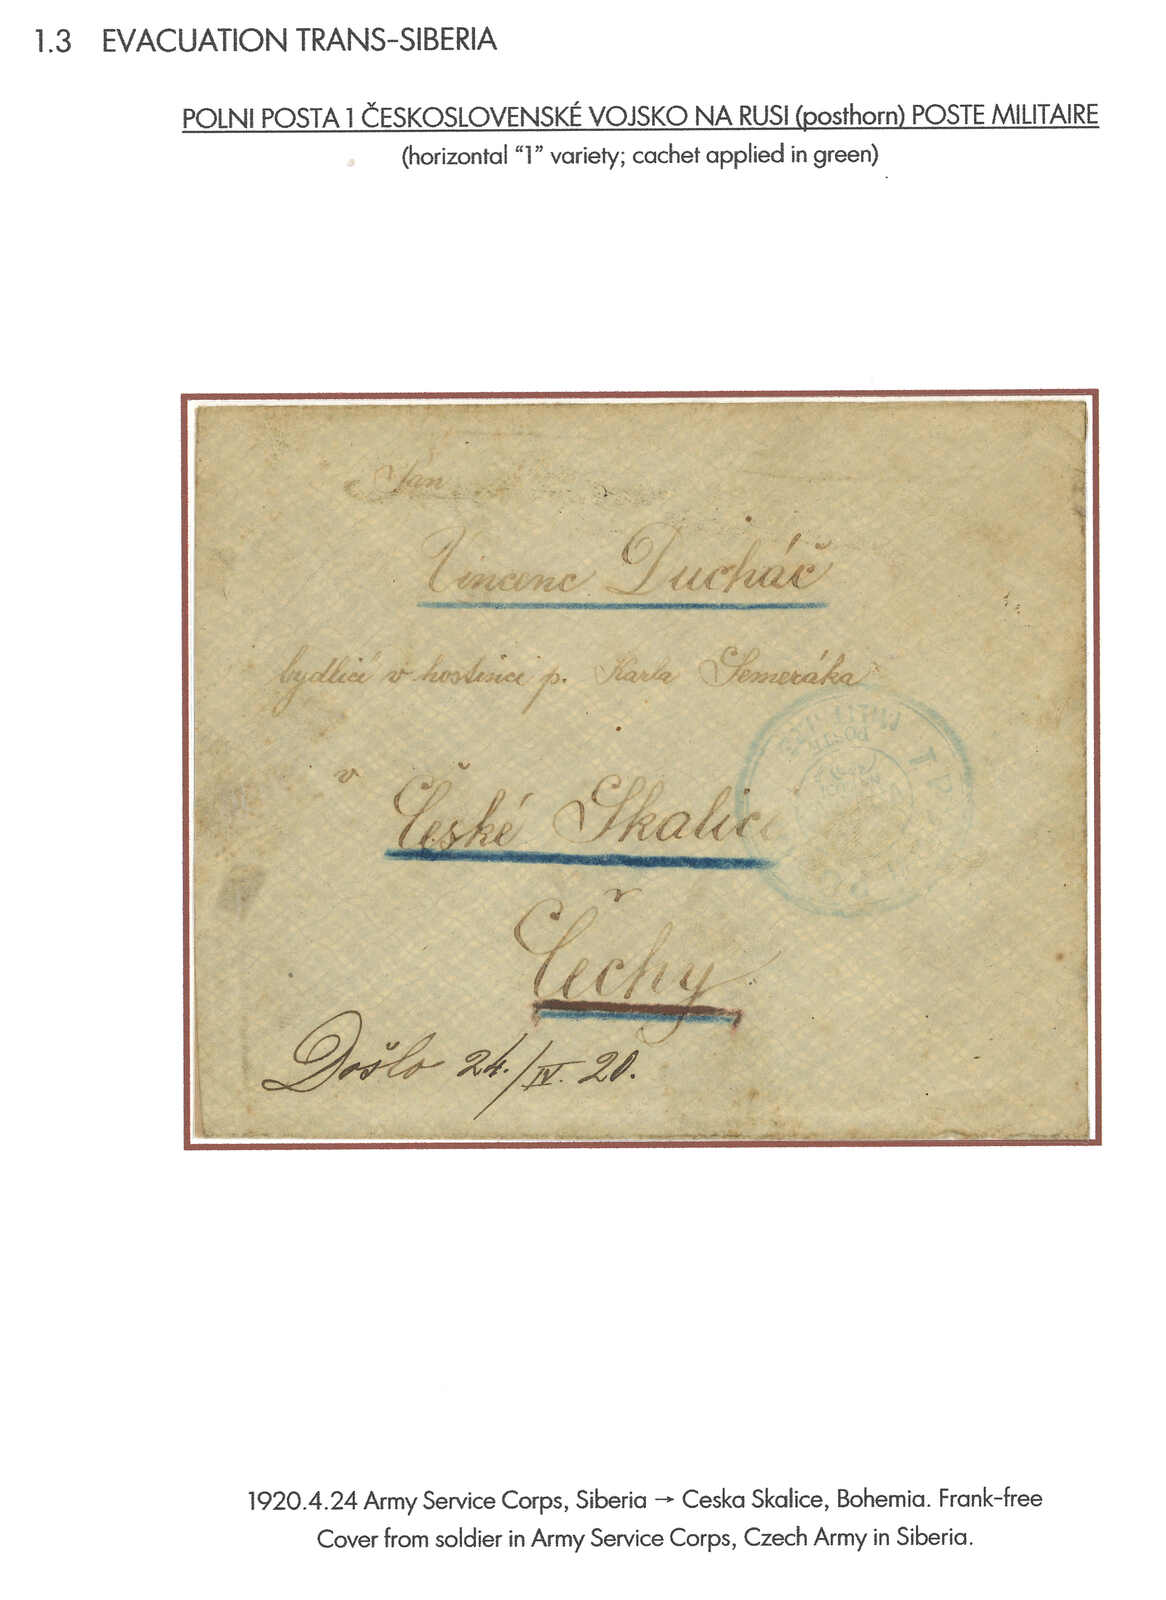 1.3 EVACUATION TRANS-SIBERIA
POLNI POSTA 1 ČESKOSLOVENSKÉ VOJSKO NA RUSI (posthorn) POSTE MILITAIRE
(horizontal "1" variety; cachet applied in green)
Jan
Vincenc Ducháč
bydlící v hostinci p. Karla Semeráka
v
České Skalici
v
Čechy
Došlo 24./IV. 20.
1920.4.24 Army Service Corps, Siberia → Ceska Skalice, Bohemia. Frank-free
Cover from soldier in Army Service Corps, Czech Army in Siberia.